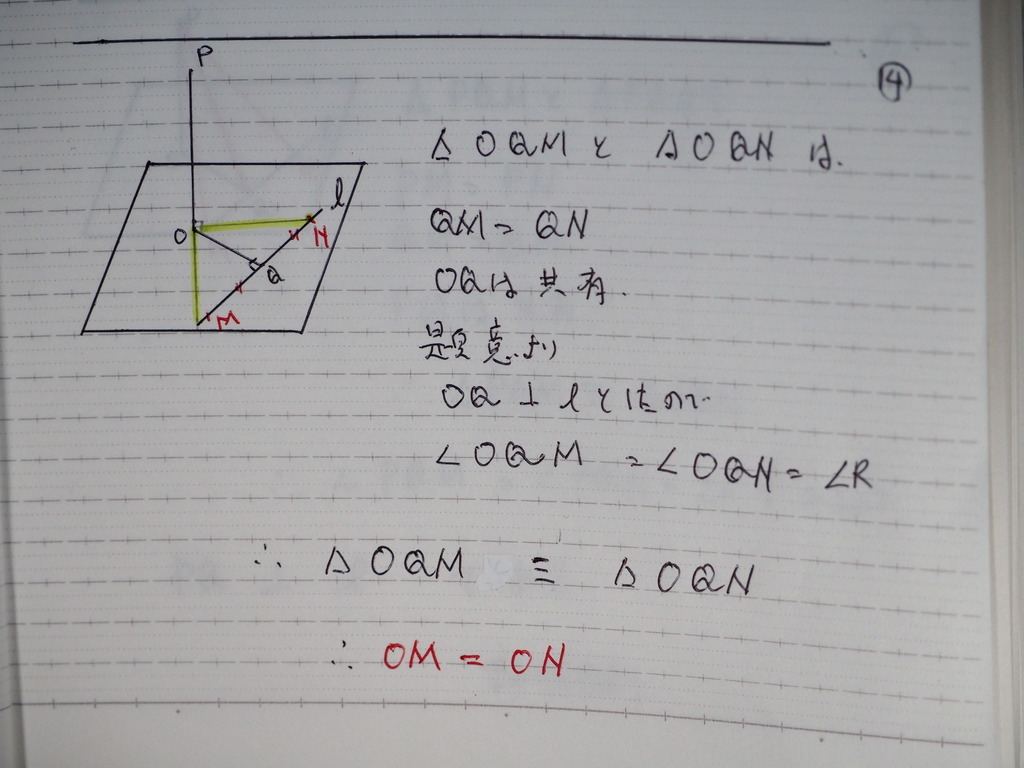 ④
P
l
O
N
Q
M
△OQMと△OQNは.
QM=QN
OQは共有.
題意より
OQ⊥lとなので
∠OQM=∠OQN=∠R
∴ △OQM≡△OQN
∴ OM=ON